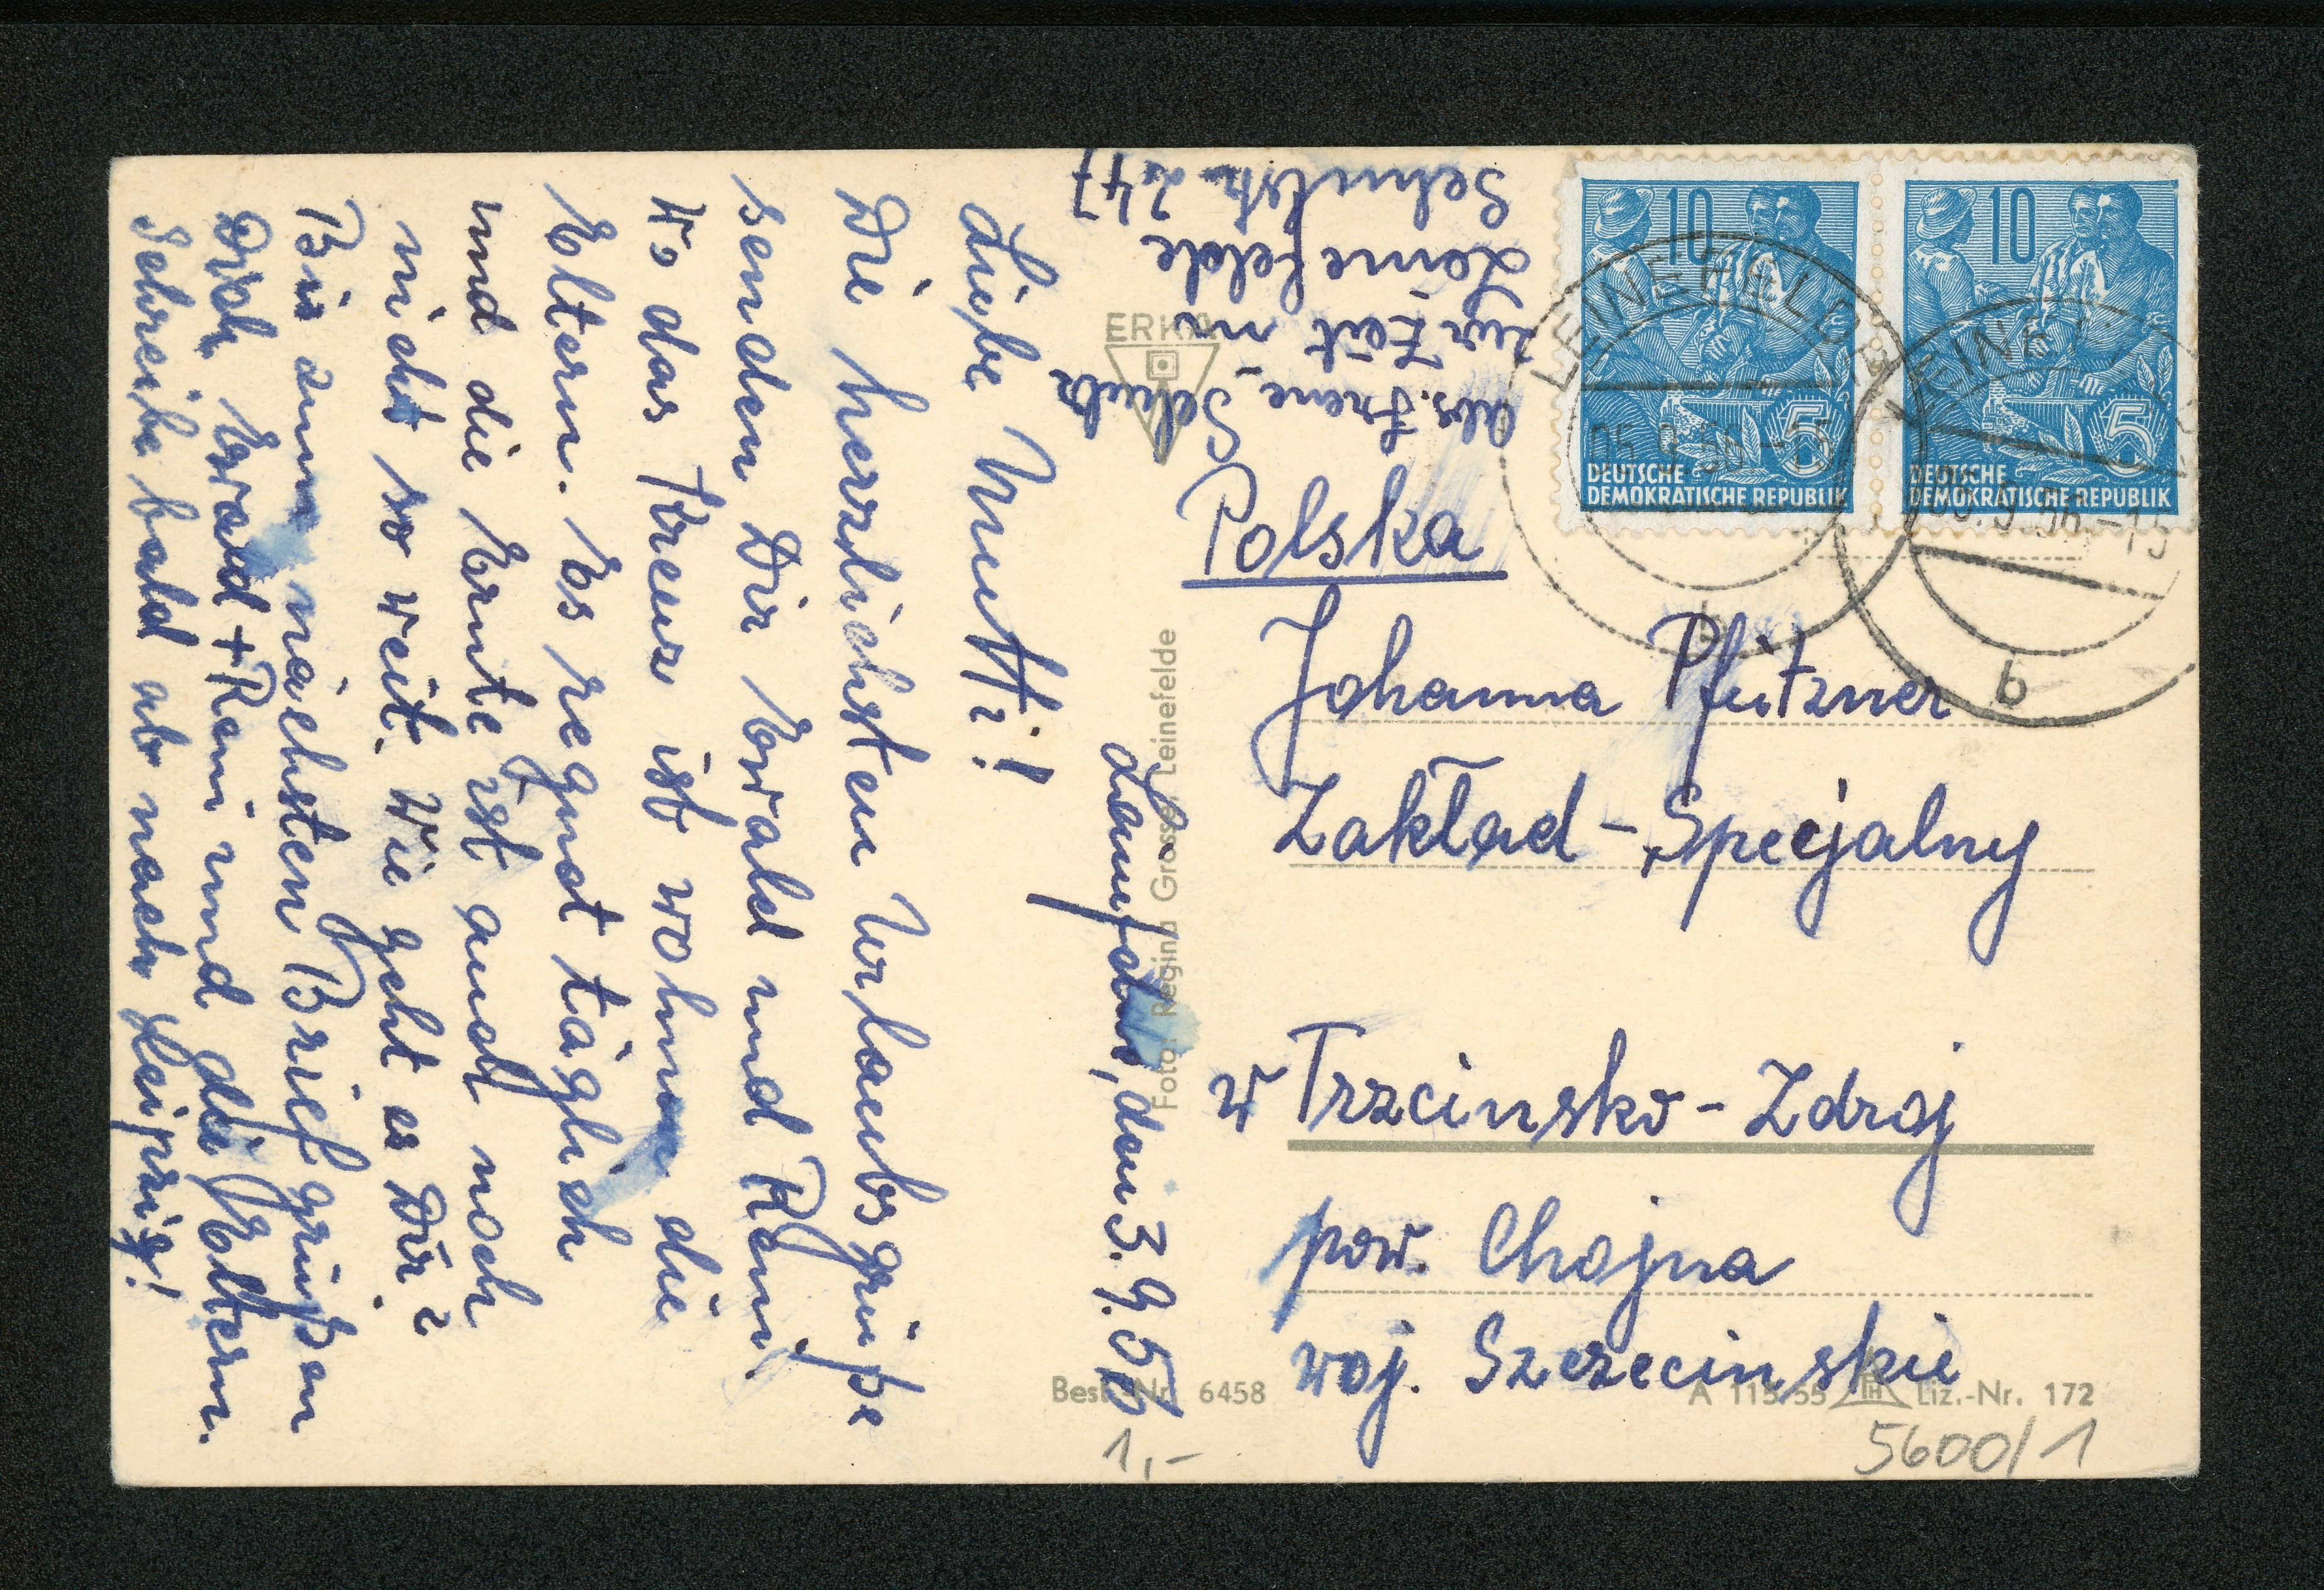 Leinefelde, den 3.9.56
Liebe Mutti!
Die herzlichsten Urlaubsgrüße
senden Dir Ewald und Reni.
Wo das Kreuz ist wohnen die
Eltern. Es regnet täglich
und die Ernte ist auch noch
nicht so weit. Wie geht es Dir?
Bis zum nächsten Brief grüßen
Dich Ewald + Reni und die Eltern.
Schreibe bald ab nach Leipzig!
Abs. Irene
zur Zeit in
Leinefelde
Schulstr. 247
ERKA
Foto: Regina Grosse Leinefelde
10
5
DEUTSCHE
DEMOKRATISCHE REPUBLIK
10
5
DEUTSCHE
DEMOKRATISCHE REPUBLIK
LEINEFELDE
b
LEINEFELDE
b
Polska
Johanna Pfützner
Zakład-Specjalny
w Trzcinsko-Zdroj
pow. Chojna
woj. Szczecinskie
Best.-Nr. 6458
A 115/55
Liz.-Nr. 172
1,-
5600/1